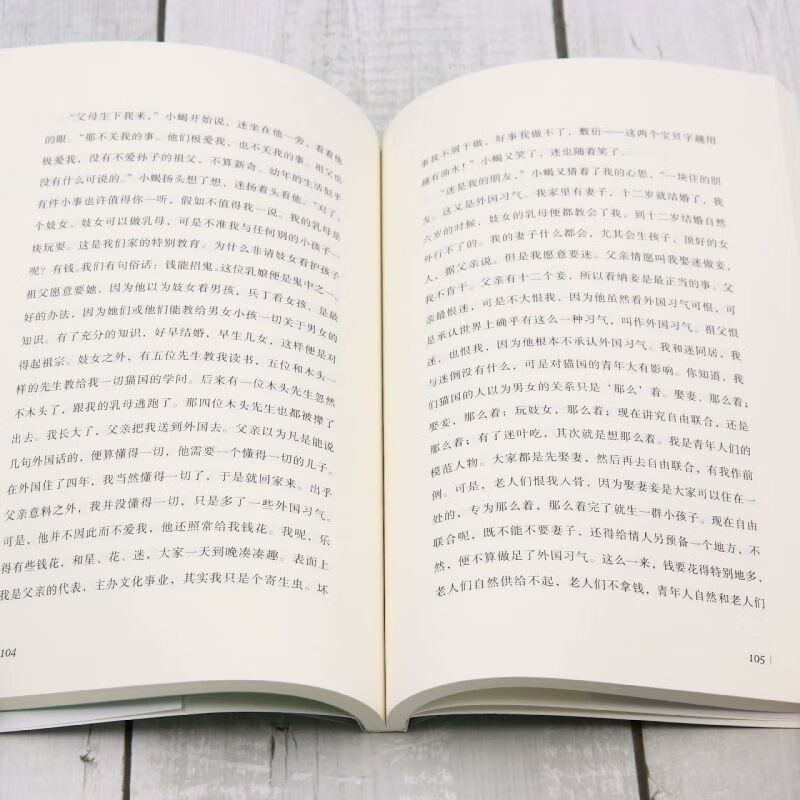 “父母生下我来，”小蝎开始说，迷坐在他一旁，看着他
的眼。“那不关我的事。他们极爱我，也不关我的事。祖父也
极爱我，没有不爱孙子的祖父，不算新奇。幼年的生活似乎
没有什么可说的。”小蝎扬头想了想，迷扬着头看他。“对了，
有件小事也许值得你一听，假如不值得我一说。我的乳母是
个妓女。妓女可以做乳母，可是不准我与任何别的小孩子一
块玩耍。这是我们家的特别教育。为什么非请妓女看护孩子
呢？有钱。我们有句俗话：钱能招鬼。这位乳娘便是鬼中之一。
祖父愿意要她，因为他以为妓女看男孩，兵丁看女孩，是最
好的办法，因为她们或他们能教给男女小孩一切关于男女的
知识。有了充分的知识，好早结婚，早生儿女，这样便是对
得起祖宗。妓女之外，有五位先生教我读书，五位和木头一
样的先生教给我一切猫国的学问。后来有一位木头先生忽然
不木头了，跟我的乳母逃跑了。那四位木头先生也都被撵了
出去。我长大了，父亲把我送到外国去。父亲以为凡是能说
几句外国话的，便算懂得一切，他需要一个懂得一切的儿子。
在外国住了四年，我当然懂得一切了，于是就回家来。出乎
父亲意料之外，我并没懂得一切，只是多了一些外国习气。
可是，他并不因此而不爱我，他还照常给我钱花。我呢，乐
得有些钱花，和星、花、迷，大家一天到晚凑凑趣。表面上
我是父亲的代表，主办文化事业，其实我只是个寄生虫。坏
104
事我不屑于做，好事我做不了，敷衍——这两个宝贝字越用
越有油水！”小蝎又笑了，迷也随着笑了。
“迷是我的朋友，”小蝎又猜着了我的心思，“一块住的朋
友。这又是外国习气。我家里有妻子，十二岁就结婚了，我
六岁的时候，妓女的乳母便都教会了我，到十二岁结婚自然
外行不了的。我的妻子什么都会，尤其会生孩子，顶好的女
人，据父亲说。但是我愿意要迷。父亲情愿叫我娶迷做妾，
我不肯干。父亲有十二个妾，所以看纳妾是最正当的事。父
亲最恨迷，可是不大恨我，因为他虽然看外国习气可恨，可
是承认世界上确乎有这么一种习气，叫作外国习气。祖父恨
迷，也恨我，因为他根本不承认外国习气。我和迷同居，我
与迷倒没有什么，可是对猫国的青年大有影响。你知道，我
们猫国的人以为男女的关系只是‘那么’着。娶妻，那么着；
娶妾，那么着；玩妓女，那么着；现在讲究自由联合，还是
那么着；有了迷叶吃，其次就是想那么着。我是青年人们的
模范人物。大家都是先娶妻，然后再去自由联合，有我作前
例。可是，老人们恨我入骨，因为娶妻妾是大家可以住在一
处的，专为那么着，那么着完了就生一群小孩子。现在自由
联合呢，既不能不要妻子，还得给情人另预备一个地方，不
然，便不算做足了外国习气。这么一来，钱要花得特别地多，
老人们自然供给不起，老人们不拿钱，青年人自然和老人们
105